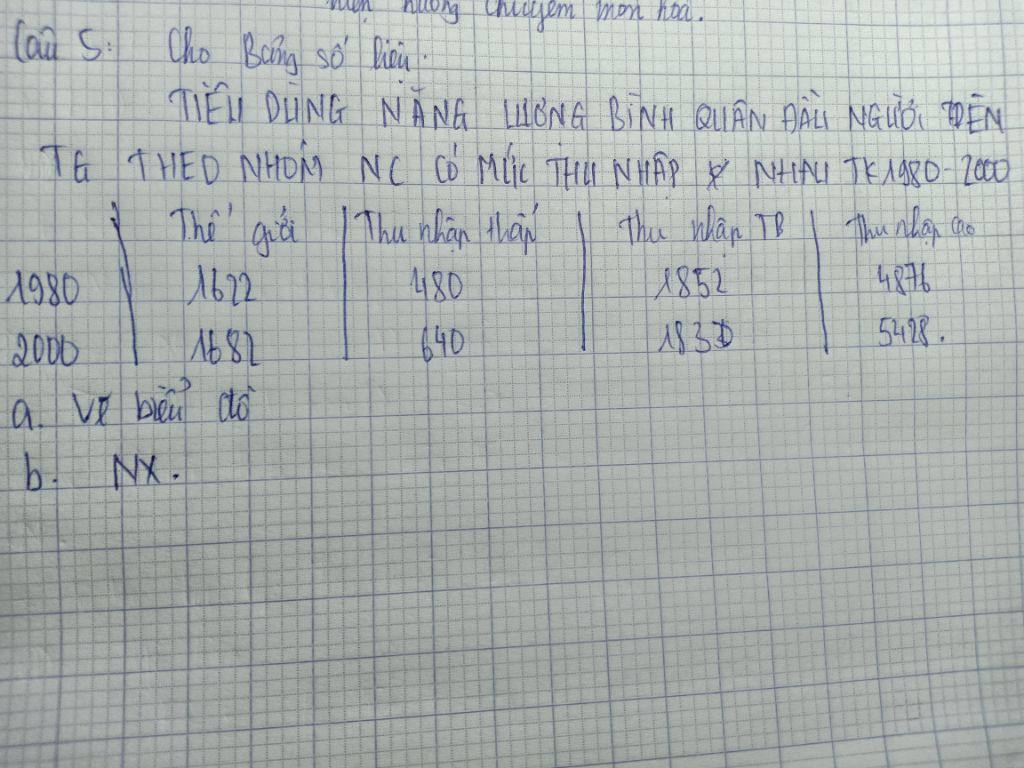 hiện hướng chuyên môn hoá.
Câu 5: Cho Bảng số liệu.
TIÊU DÙNG NĂNG LƯỢNG BÌNH QUÂN ĐẦU NGƯỜI TRÊN
TG THEO NHÓM NC CÓ MỨC THU NHẬP ≠ NHAU TK 1980-2000
Thế giới Thu nhập thấp Thu nhập TB Thu nhập cao
1980 1622 480 1852 4876
2000 1682 640 1830 5428.
a. Vẽ biểu đồ
b. NX.